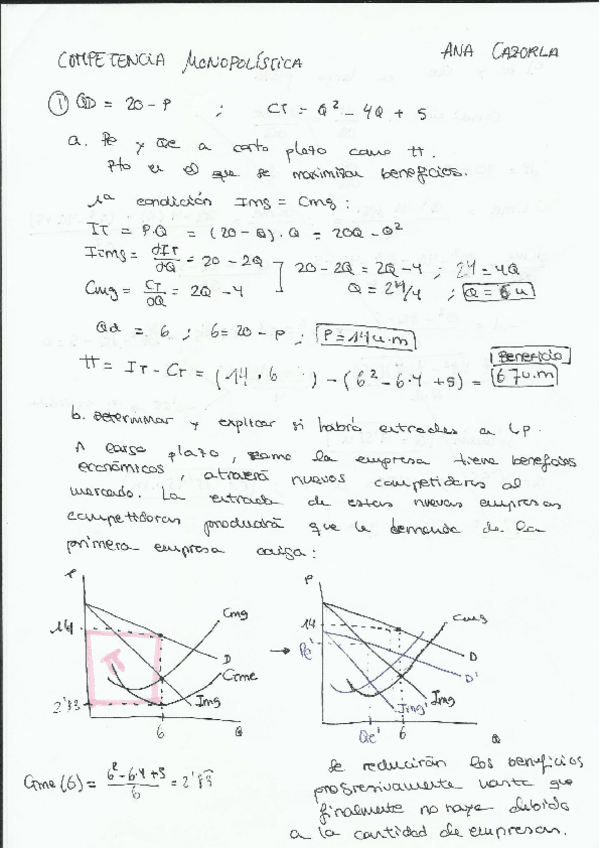 COMPETENCIA MONOPOLÍSTICA
ANA CAZORLA
① QD = 20 - P ; CT = Q² - 4Q + 5
a. Pe y Qe a corto plazo como π.
Pto en el que se maximizan beneficios.
1ª condición Img = Cmg:
IT = P.Q = (20-Q).Q = 20Q - Q²
Img = ∂IT/∂Q = 20 - 2Q
Cmg = CT/∂Q = 2Q - 4
20 - 2Q = 2Q - 4 ; 24 = 4Q
Q = 24/4 ; Q = 6 u
Qd = 6 ; 6 = 20 - P ; P = 14 u.m
π = IT - CT = (14 · 6) - (6² - 6·4 + 5) = 67 u.m
Beneficio
b. Determinar y explicar si habrá entradas a LP.
A largo plazo, como la empresa tiene beneficios
económicos atraerá nuevos competidores al
mercado. La entrada de estas nuevas empresas
competidoras producirá que la demanda de la
primera empresa caiga:
P
14
2'33
π
Cmg
D
Cme
Img
6
Q
→
P
14
Pe'
Cmg
D
D'
Img
Img'
Qe'
6
Q
Cme (6) = 6² - 6·4 + 5 / 6 = 2'83
Se reducirán los beneficios
progresivamente hasta que
finalmente no haya debido
a la cantidad de empresas.